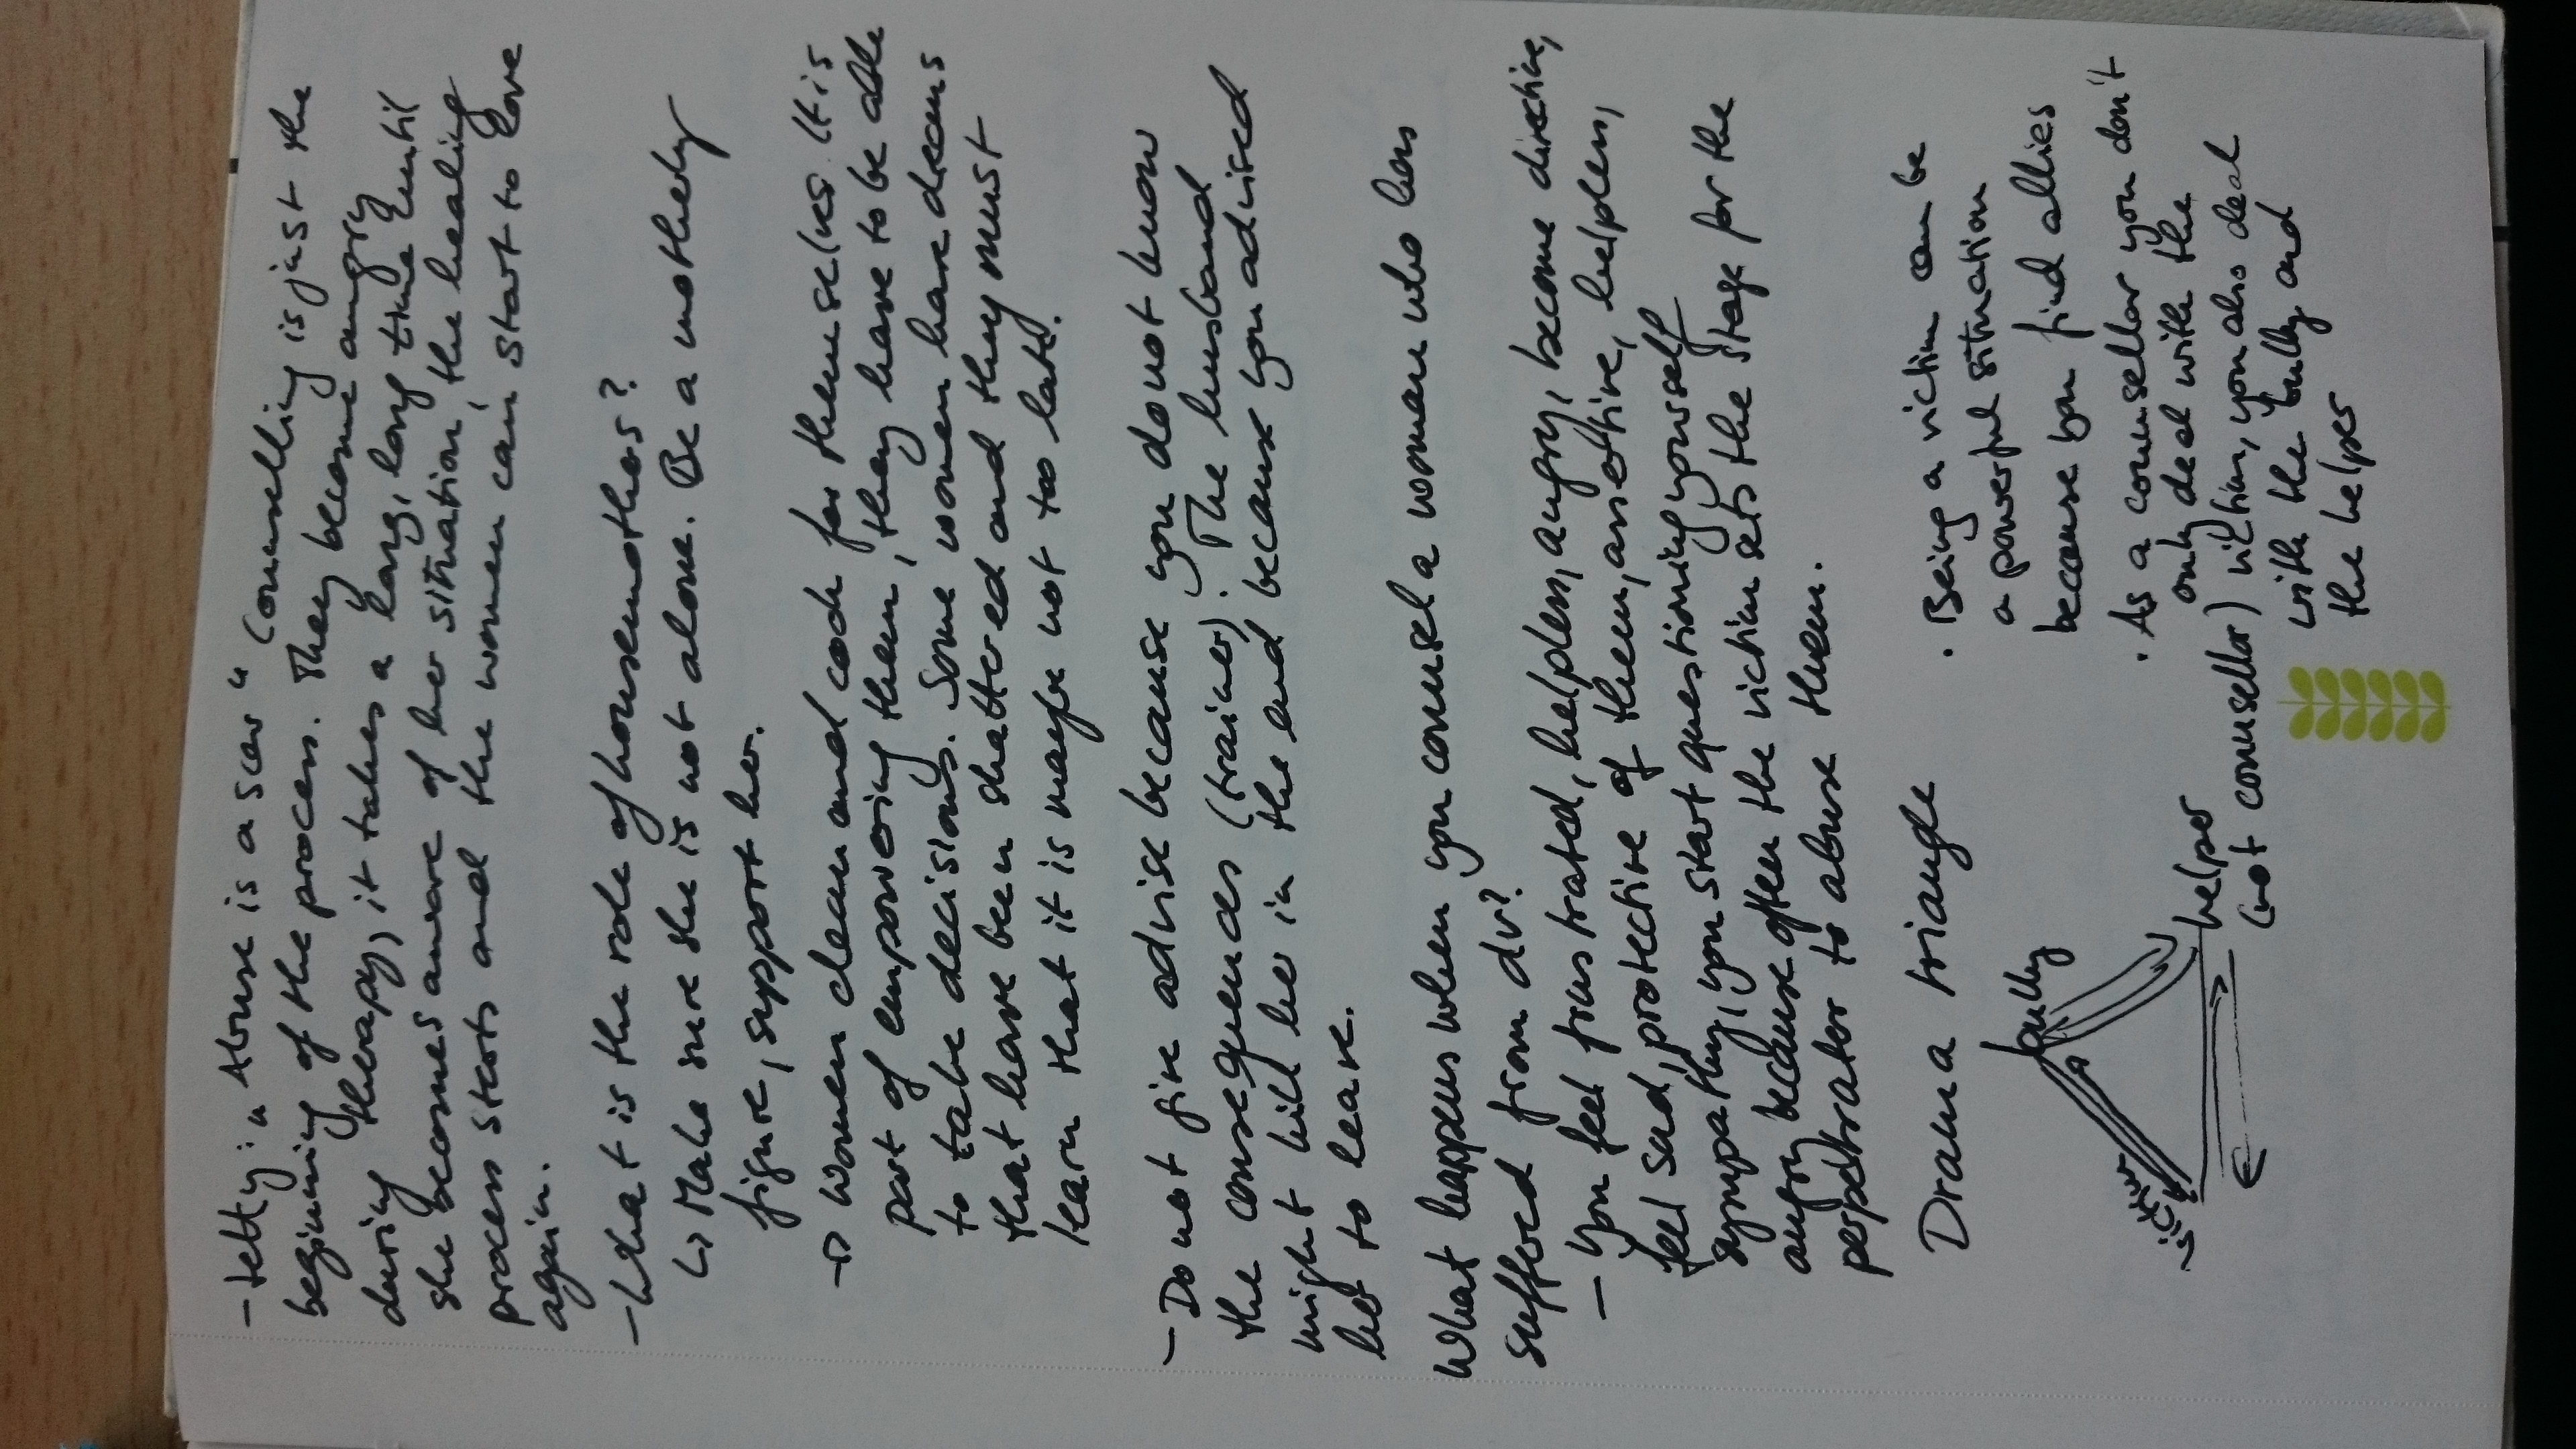 - tetty: " Abuse is a scar " Counselling is just the
beginning of the process. They become angry
during therapy, it takes a long, long time until
she becomes aware of her situation, the healing
process starts and the women can start to love
again.
- What is the role of housemothers?
↳ Make sure she is not alone. Be a motherly
figure, support her.
→ Women clean and cook for themselves. It is
part of empowering them, they have to be able
to take decisions. Some women have dreams
that have been shattered and they must
learn that it is maybe not too late.
- Do not give advise because you do not know
the consequences (trainer). The husband
might kill her in the end because you advised
her to leave.
What happens when you counsel a woman who has
suffered from dv?
- you feel frustrated, helpless, angry, become directive,
feel sad, protective of them, assertive, helpless,
sympathy, you start questioning yourself
angry because often the victim sets the stage for the
perpetrator to abuse them.
Drama triangle
bully
victim
helper
(not counsellor)
. Being a victim can be
a powerful situation
because you find allies
. As a counsellor you don't
only deal with the
victim, you also deal
with the bully and
the helper